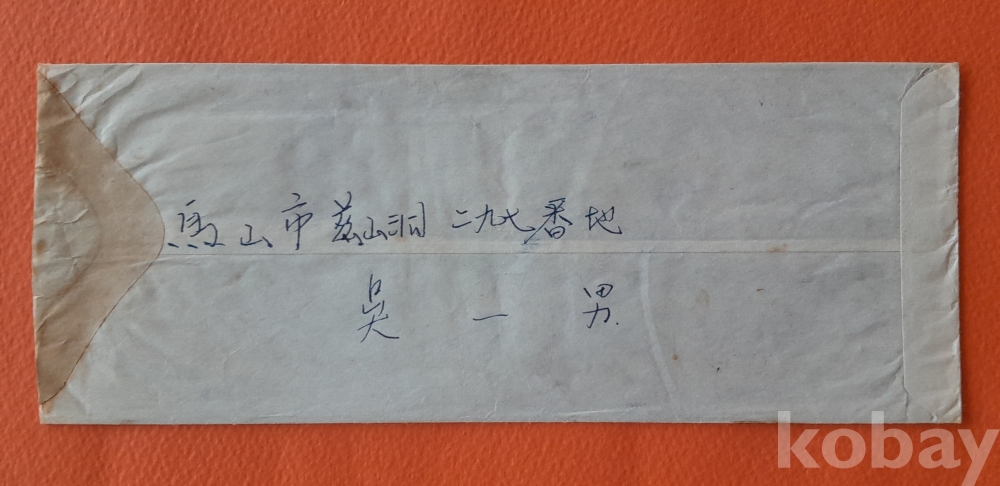 馬山市玆山洞 二九七番地
吳 一 男
kobay